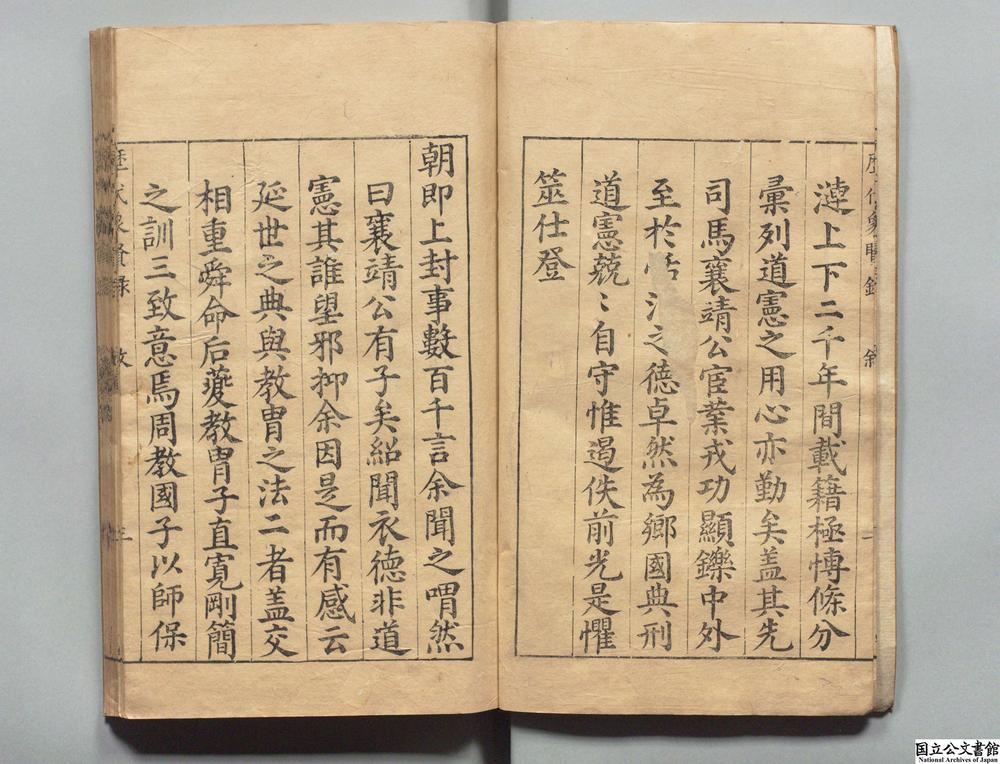 漣上下二千年間載籍極愽條分
彙列道憲之用心亦勤矣盖其先
司馬襄靖公宦業戎功顯鑠中外
至於之德卓然為鄉國典刑
道憲兢〻自守惟遏佚前光是懼
筮仕登
朝即上封事數百千言余聞之喟然
曰襄靖公有子矣紹聞衣德非道
憲其誰望邪抑余因是而有感云
延世之典與教胄之法二者盖交
相重舜命后夔教胄子直寬剛簡
之訓三致意焉周教國子以師保
歷代象賢録
敘
三
国立公文書館
National Archives of Japan